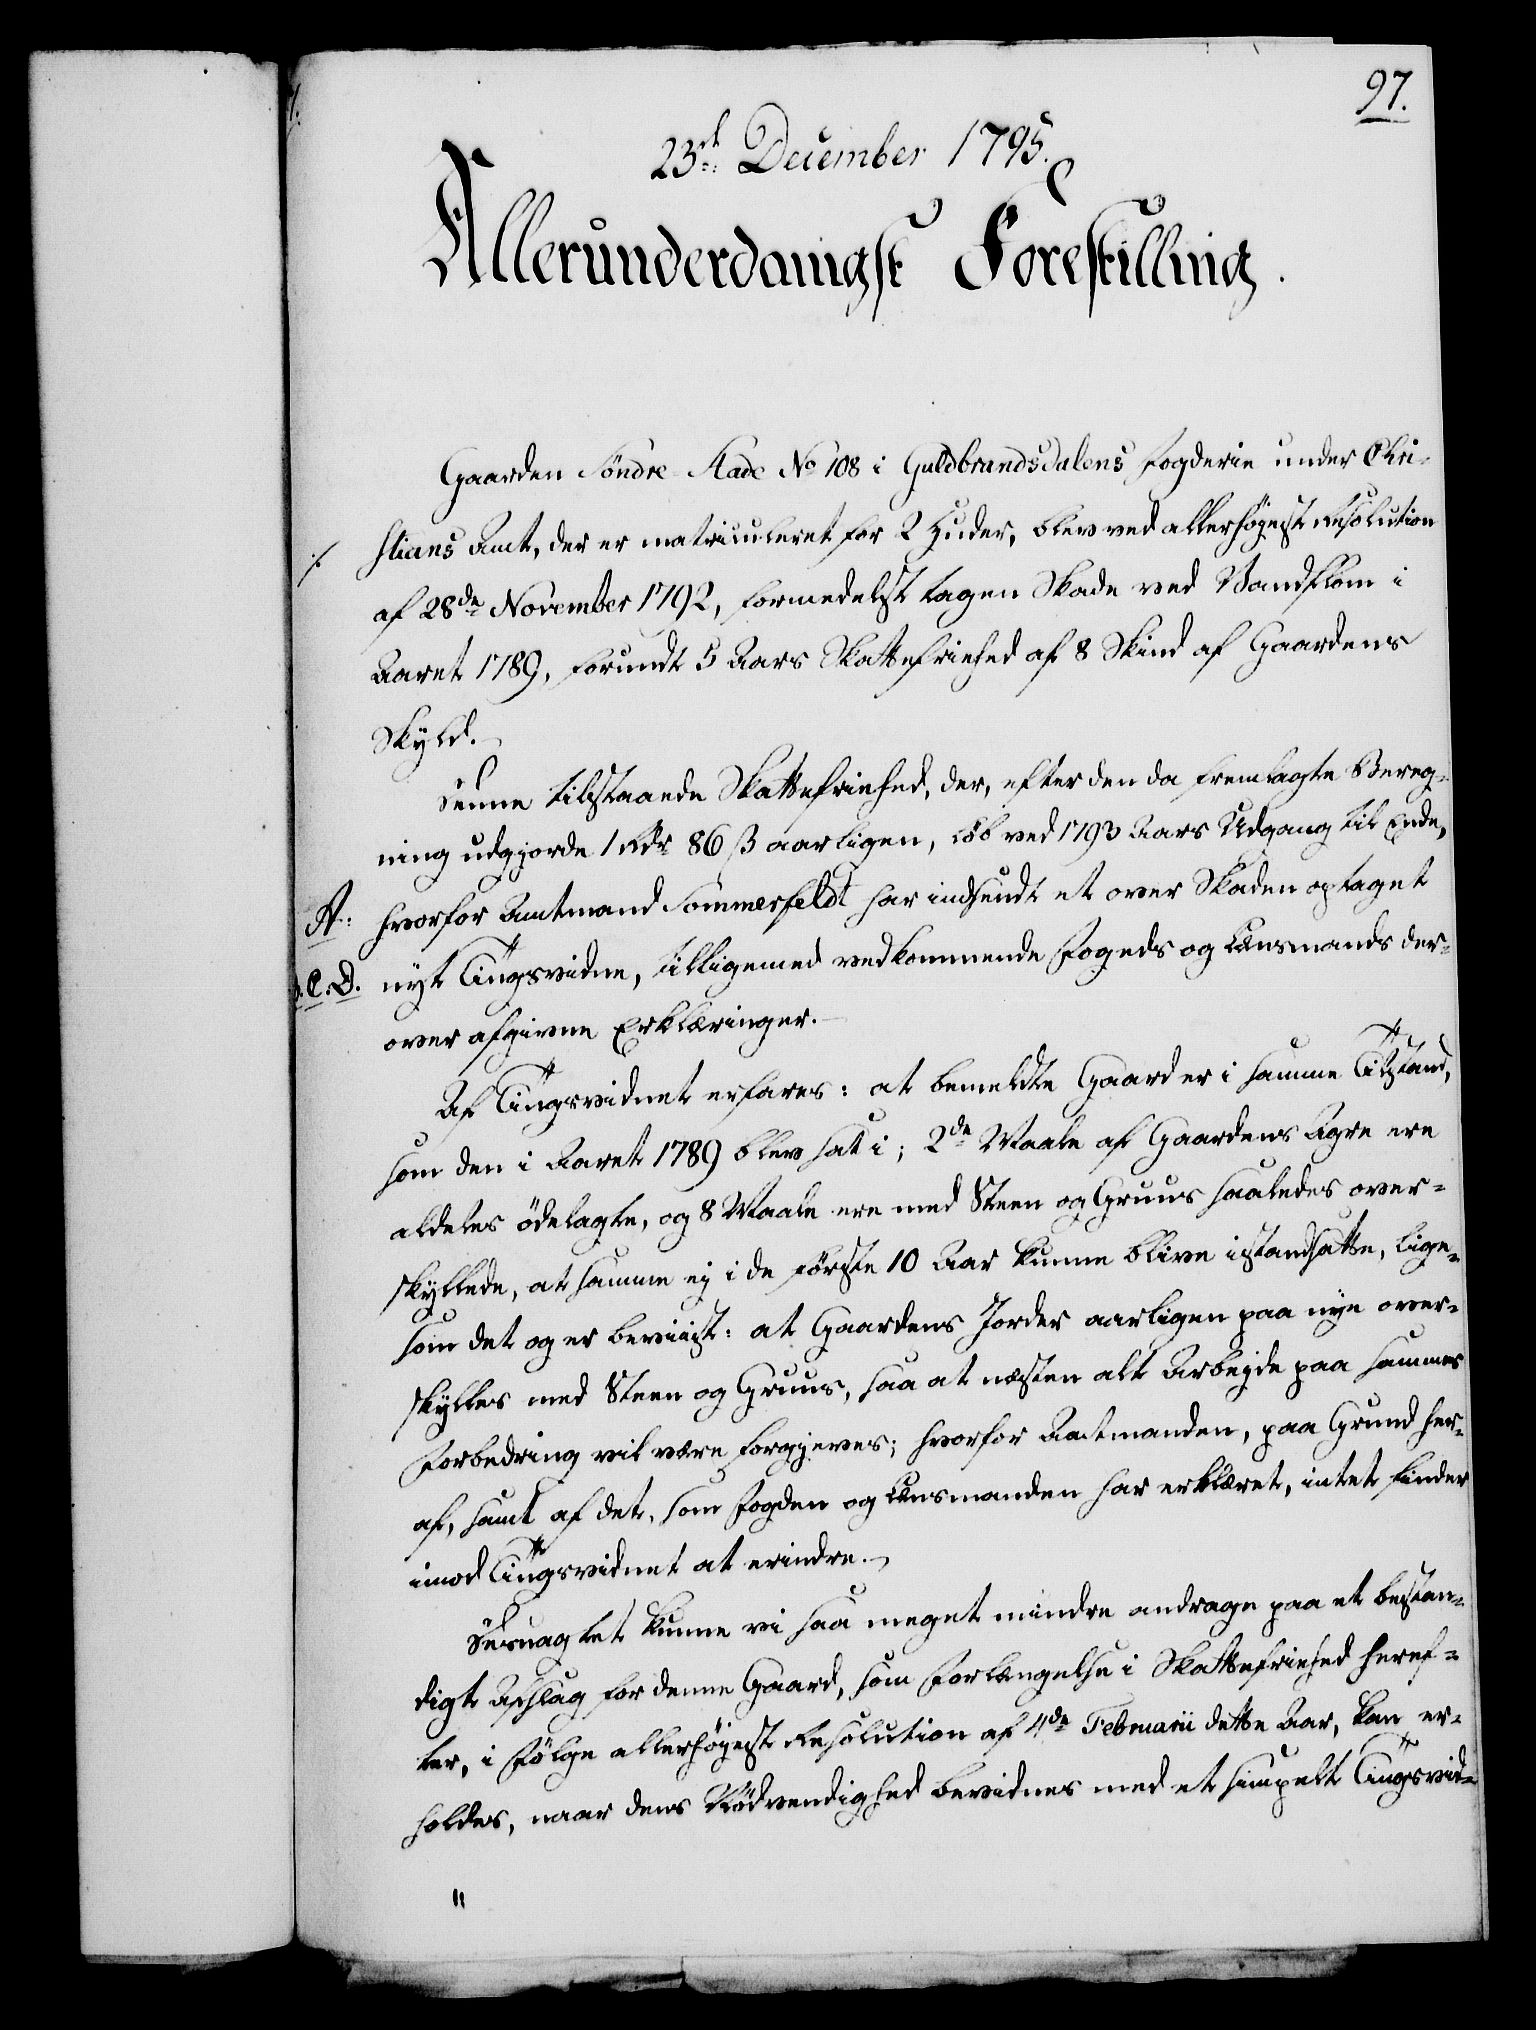 97.
23d. December 1795.
Allerunderdanigst Forestilling.
Gaarden Söndre Aade No 108 i Guldbrandsdalens Fogderie under Chri-
stians Amt, der er matriculeret for 2 Huder, blev ved allerhöyest Resolution
af 28de November 1792, formedelst tagen Skade ved Vandflom i
Aaret 1789, forundt 5 Aars Skattefriehed af 8 Skind af Gaardens
Skyld.
Denne tilstaaede Skattefriehed, der, efter den da fremlagte Bereg-
ning udgjorde 1 Rdr 86 ß aarligen, löb ved 1793 Aars Udgang til Ende,
A: hvorfor Amtmand Sommerfeldt har indsendt et over Skaden optaget
C. D. nyt Tingsvidne, tilligemed vedkommende Fogeds og Lænsmands der-
over afgivne Erklæringer.
Af Tingsvidnet erfares: at bemeldte Gaard er i samme Tilstand,
som den i Aaret 1789 blev sat i; 2de Maale af Gaardens Agre ere
aldeles ödelagte, og 8 Maale ere med Steen og Gruus saaledes over-
skyllede, at samme ej i de förste 10 Aar kunne blive istandsatte, lige-
som det og er beviist: at Gaardens Jorder aarligen paa nye over-
skylles med Steen og Gruus, saa at næsten alt Arbejde paa sammes
Forbedring vil være forgjeves; hvorfor Amtmanden, paa Grund her-
af, samt af det, som Fogden og Lænsmanden har erklæret, intet finder
imod Tingsvidnet at erindre.
Desuagtet kunne vi saa meget mindre andrage paa et bestan-
digt Afslag for denne Gaard, som Forlængelse i Skattefriehed heref-
ter, i Fölge allerhöyest Resolution af 4de Februarii dette Aar, kan er-
holdes, naar dens Nödvendighed bevidnes med et simpelt Tingsvid-
"